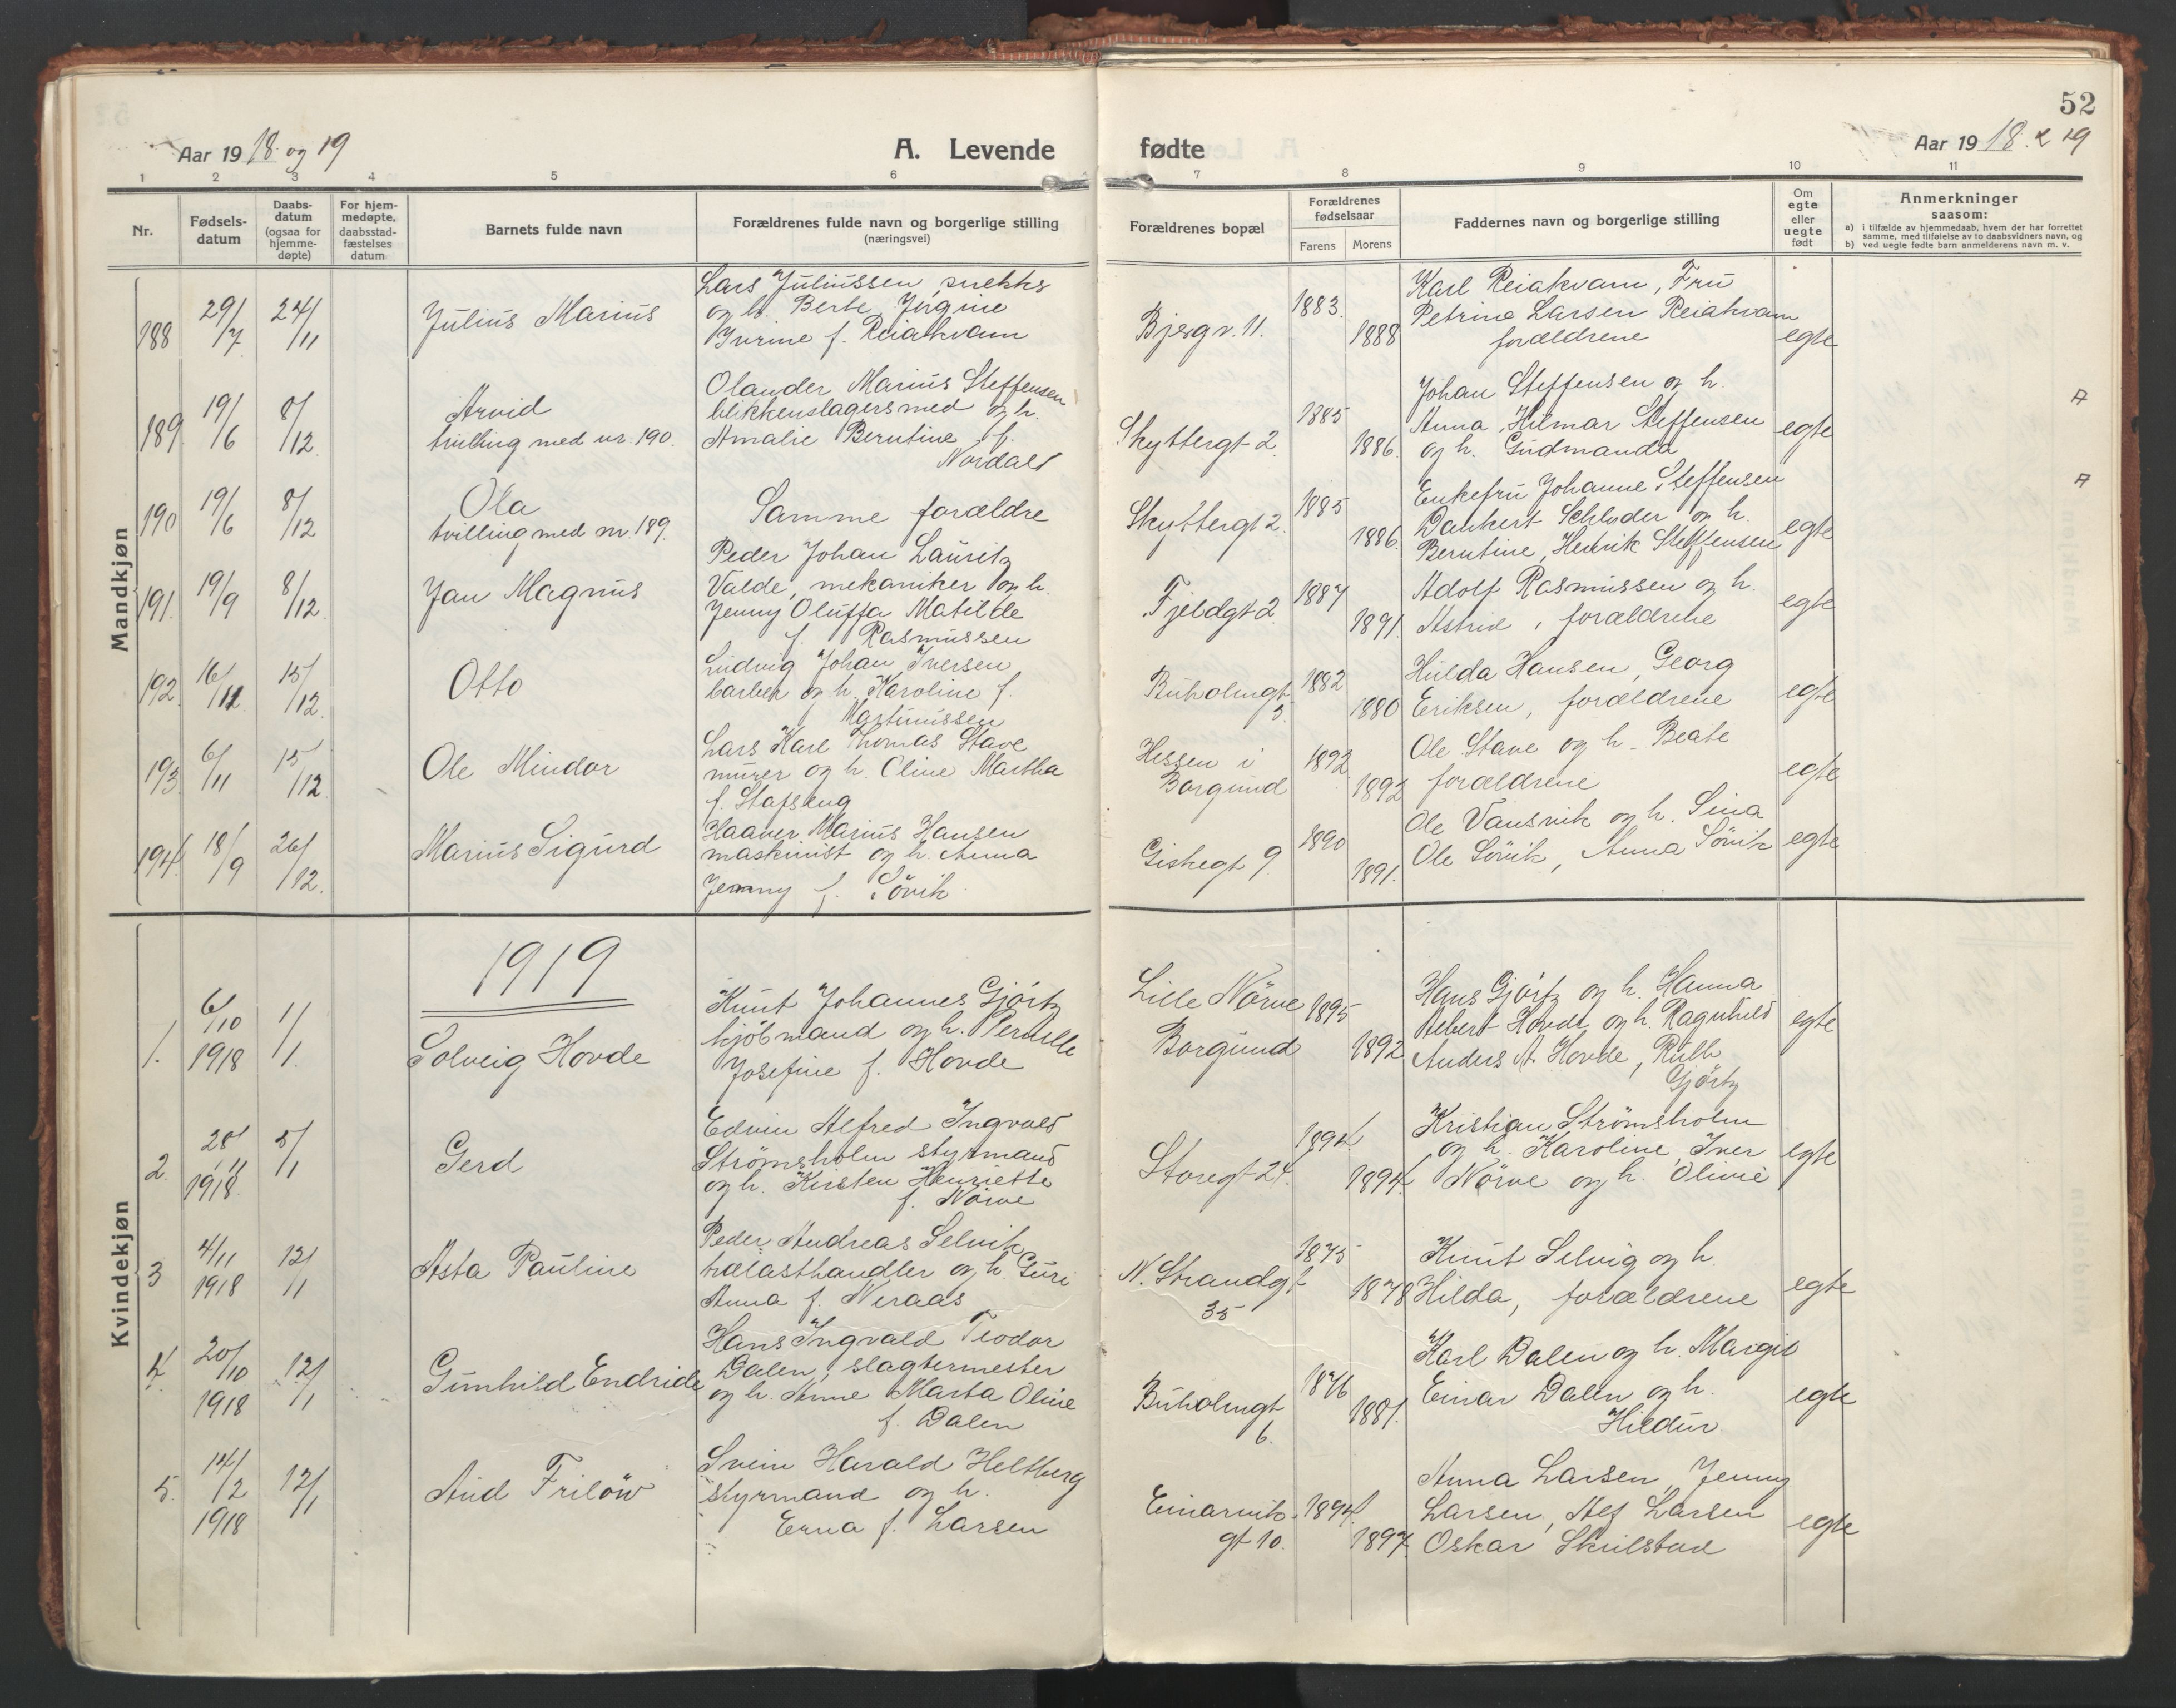 52
Aar 19 18 og 19
A. Levende fødte
Aar 19 18 & 19
1 2 3 4 5 6 7 8 9 10 11
Nr.
Fødselsdatum
Daabsdatum (ogsaa for hjemmedøpte)
For hjemmedøpte, daabsstadfæstelses datum
Barnets fulde navn
Forældrenes fulde navn og borgerlige stilling (næringsvei)
Forældrenes bopæl
Forældrenes fødselsaar
Farens Morens
Faddernes navn og borgerlige stilling
Om egte eller uegte født
Anmerkninger
saasom:
a) i tilfælde av hjemmedaab, hvem der har forrettet samme, med tilføielse av to daabsvidners navn, og
b) ved uegte fødte barn anmelderens navn m. v.
Mandkjøn
188 29/7 24/11 Julius Marius
Lars Juliussen
og h. Berte Jørgine
f. Reiakvam
Bjergv. 11. 1883 1888
Karl Reiakvam, Fru
Petrine Larsen Reiakvam
forældrene
egte
189 19/6 8/12 Arvid
tvilling med nr. 190.
Olander Marius Steffensen
blikkenslagersmed og h.
Amalie Berntine f.
Nordal
Skyttergt 2. 1885 1886.
Johan Steffensen og h.
Anna, Hilmar Steffensen
og h. Gudmanda
egte
190 19/6 8/12 Ola
tvilling med nr. 189.
Samme forældre
Skyttergt 2. 1885 1886.
Enkefru Johanne Steffensen
Dankert Schlyder og h.
Berntine, Henrik Steffensen
egte
191. 19/9 8/12 Jan Magnus
Peder Johan Lauritz
Valde, mekaniker og h.
Jenny Oluffa Matilde
f. Rasmussen
Fjeldgt 2. 1887 1891.
Adolf Rasmussen og h.
Astrid, forældrene
egte
192. 16/11 15/12. Otto
Ludvig Johan Iversen
barber og h. Karoline f.
Martinussen
Buholmgt
5. 1882 1880
Hulda Hansen, Georg
Eriksen, forældrene
egte
193 6/11 15/12. Ole Mindor
Lars Karl Thomas Stave
murer og h. Oline Martha
f. Stafseng
Hessen i
Borgund 1892 1892
Ole Stave og h. Beate
forældrene
egte
194. 18/9 26/12. Marius Sigurd
Haaver Marius Hansen
maskinist og h. Anna
Jenny f. Sövik
Giskegt 9. 1890 1891.
Ole Vausvik og h. Sina
Ole Sövik, Anna Sövik
egte
Kvindekjøn
1919
1. 6/10 1918 1/1. Solveig Hovde
Knut Johannes Gjörtz
kjöbmand og h. Pernelle
Josefine f. Hovde
Lille Nörve
Borgund 1895 1892
Hans Gjörtz og h. Hanna
Albert Hovde og h. Ragnhild
Anders A. Hovde, Ruth
Gjörtz
egte
2. 28/11 1918. 5/1 Gerd
Edvin Alfred Ingvald
Strömsholm styrmand
og h. Kirsten Henriette
f. Nörve
Storegt 24. 1894 1894.
Kristian Strömsholm
og h. Karoline, Iver
Nörve og h. Olivie
egte
3 4/11 1918 12/1 Asta Pauline
Peder Andreas Selvik
trælasthandler og h. Guri
Anna f. Neraas
N. Strandgt
35 1875 1878
Knut Selvig og h.
Hilda, forældrene
egte
4. 20/10 1918 12/1 Gunhild Endride
Hans Ingvald Teodor
Dalen, slagtermester
og h. Anne Marta Oline
f. Dalen
Buholmgt
6. 1876 1881.
Karl Dalen og h. Margit
Einar Dalen og h.
Hildur
egte
5. 14/2 1918 12/1 Aud Frilöw
Svein Harald Heltberg
styrmand og h.
Erna f. Larsen
Einarvik-
gt 10. 1894. 1897.
Anna Larsen, Jenny
Larsen, Alf Larsen
Oskar Skulstad
egte